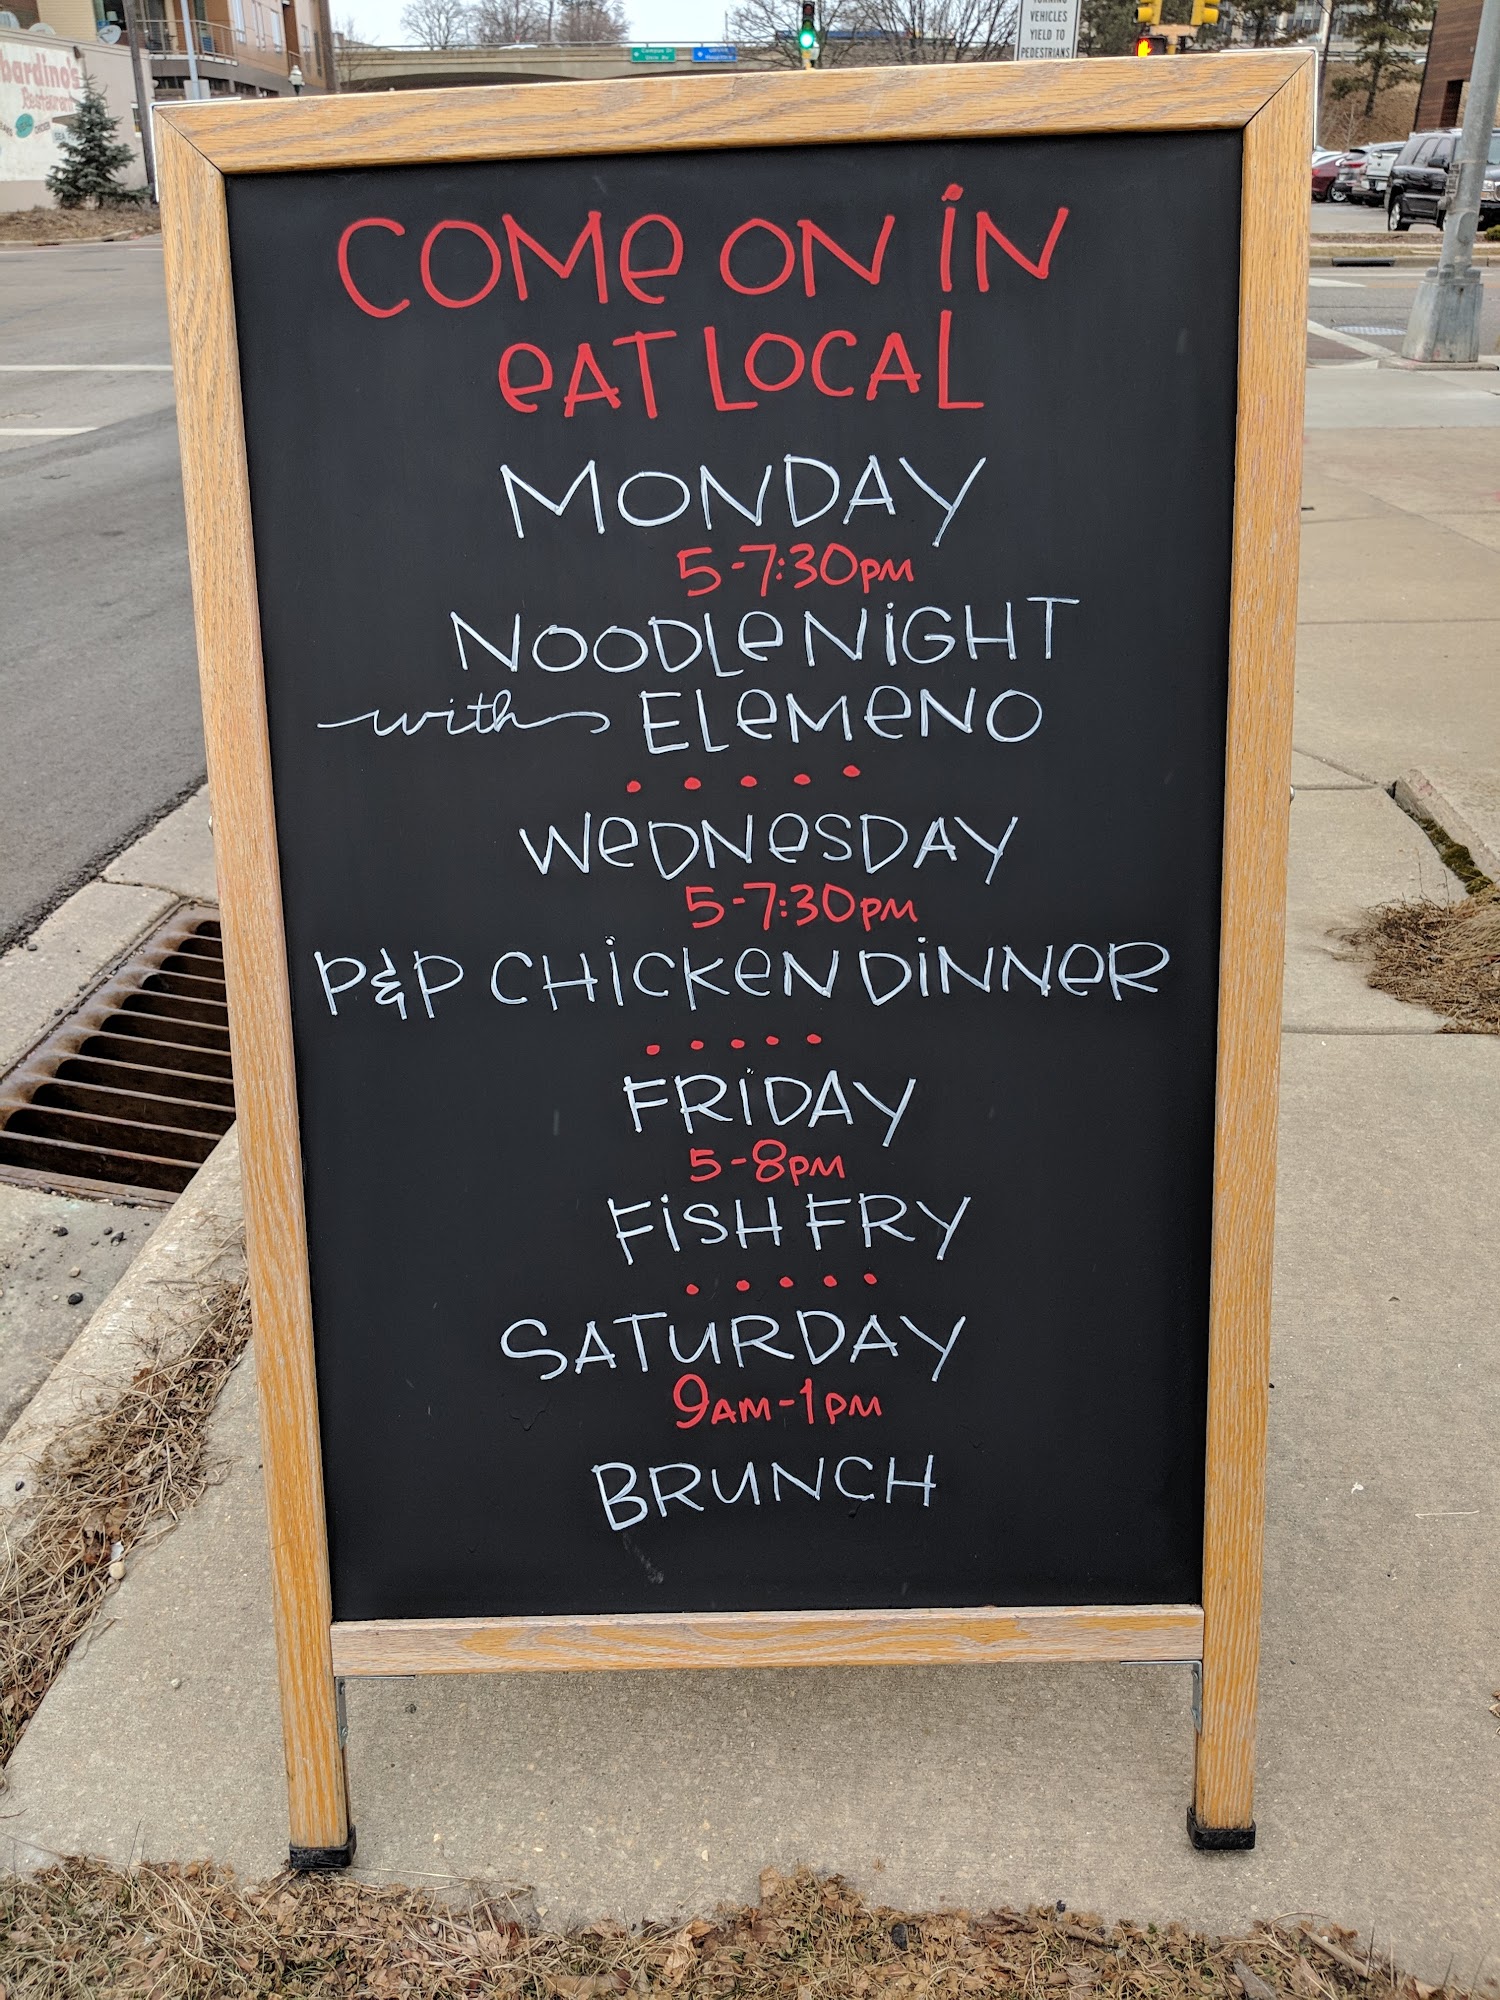 bardino's
Restaurant
TURNING
VEHICLES
YIELD TO
PEDESTRIANS
COMe ON iN
eAT LOCAL
MONDAY
5-7:30PM
NOODLe NiGHT
with ELeMeNO
WeDNeSDAY
5-7:30PM
P&P CHiCKeN DiNNeR
FRiDAY
5-8PM
FiSH FRY
SATURDAY
9AM-1PM
BRUNCH